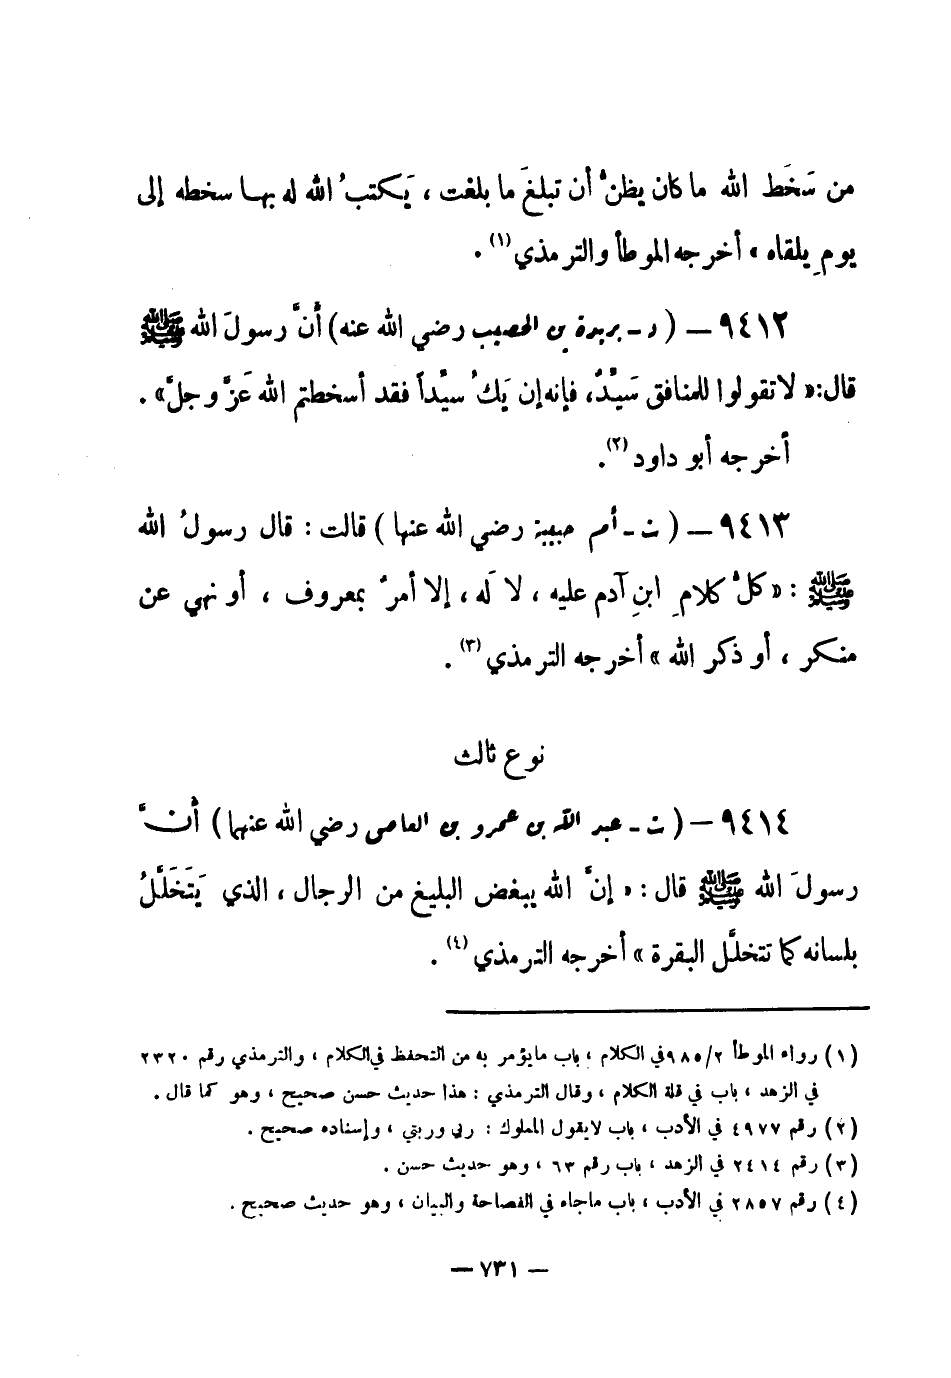 من سَخَط الله ما كان يظنُّ أن تبلغَ ما بلغت ، يَكتبُ الله له بها سخطه إلى
يومِ يلقاه » أخرجه الموطأ والترمذي (١) .
٩٤١٢ – ( د - بريدة بن الحصيب رضي الله عنه ) أنَّ رسولَ الله ﷺ
قال : « لا تقولوا للمنافق سَيِّدٌ، فإنه إن يَكُ سيِّداً فقد أسخطتم الله عَزَّ وجلَّ » .
أخرجه أبو داود (٢) .
٩٤١٣ – ( ت - أم حبيبة رضي الله عنها ) قالت : قال رسولُ الله
ﷺ : « كلُّ كلامِ ابنِ آدم عليه ، لا لَه ، إلا أمرٌ بمعروف ، أو نهي عن
منكر ، أو ذكر الله » أخرجه الترمذي (٣) .
نوع ثالث
٩٤١٤ – ( ت - عبد الله بن عمرو بن العاصي رضي الله عنهما ) أنَّ
رسولَ الله ﷺ قال : « إنَّ الله يبغض البليغ من الرجال ، الذي يَتَخَلَّلُ
بلسانه كما تتخلَّل البقرة » أخرجه الترمذي (٤) .
(١) رواه الموطأ ٩٨٥/٢ في الكلام ، باب ما يؤمر به من التحفظ في الكلام ، والترمذي رقم ٢٣٢٠
في الزهد ، باب في قلة الكلام ، وقال الترمذي : هذا حديث حسن صحيح ، وهو كما قال .
(٢) رقم ٤٩٧٧ في الأدب ، باب لا يقول المملوك : ربي وربتي ، وإسناده صحيح .
(٣) رقم ٢٤١٤ في الزهد ، باب رقم ٦٣ ، وهو حديث حسن .
(٤) رقم ٢٨٥٧ في الأدب ، باب ما جاء في الفصاحة والبيان ، وهو حديث صحيح .
– ٧٣١ –